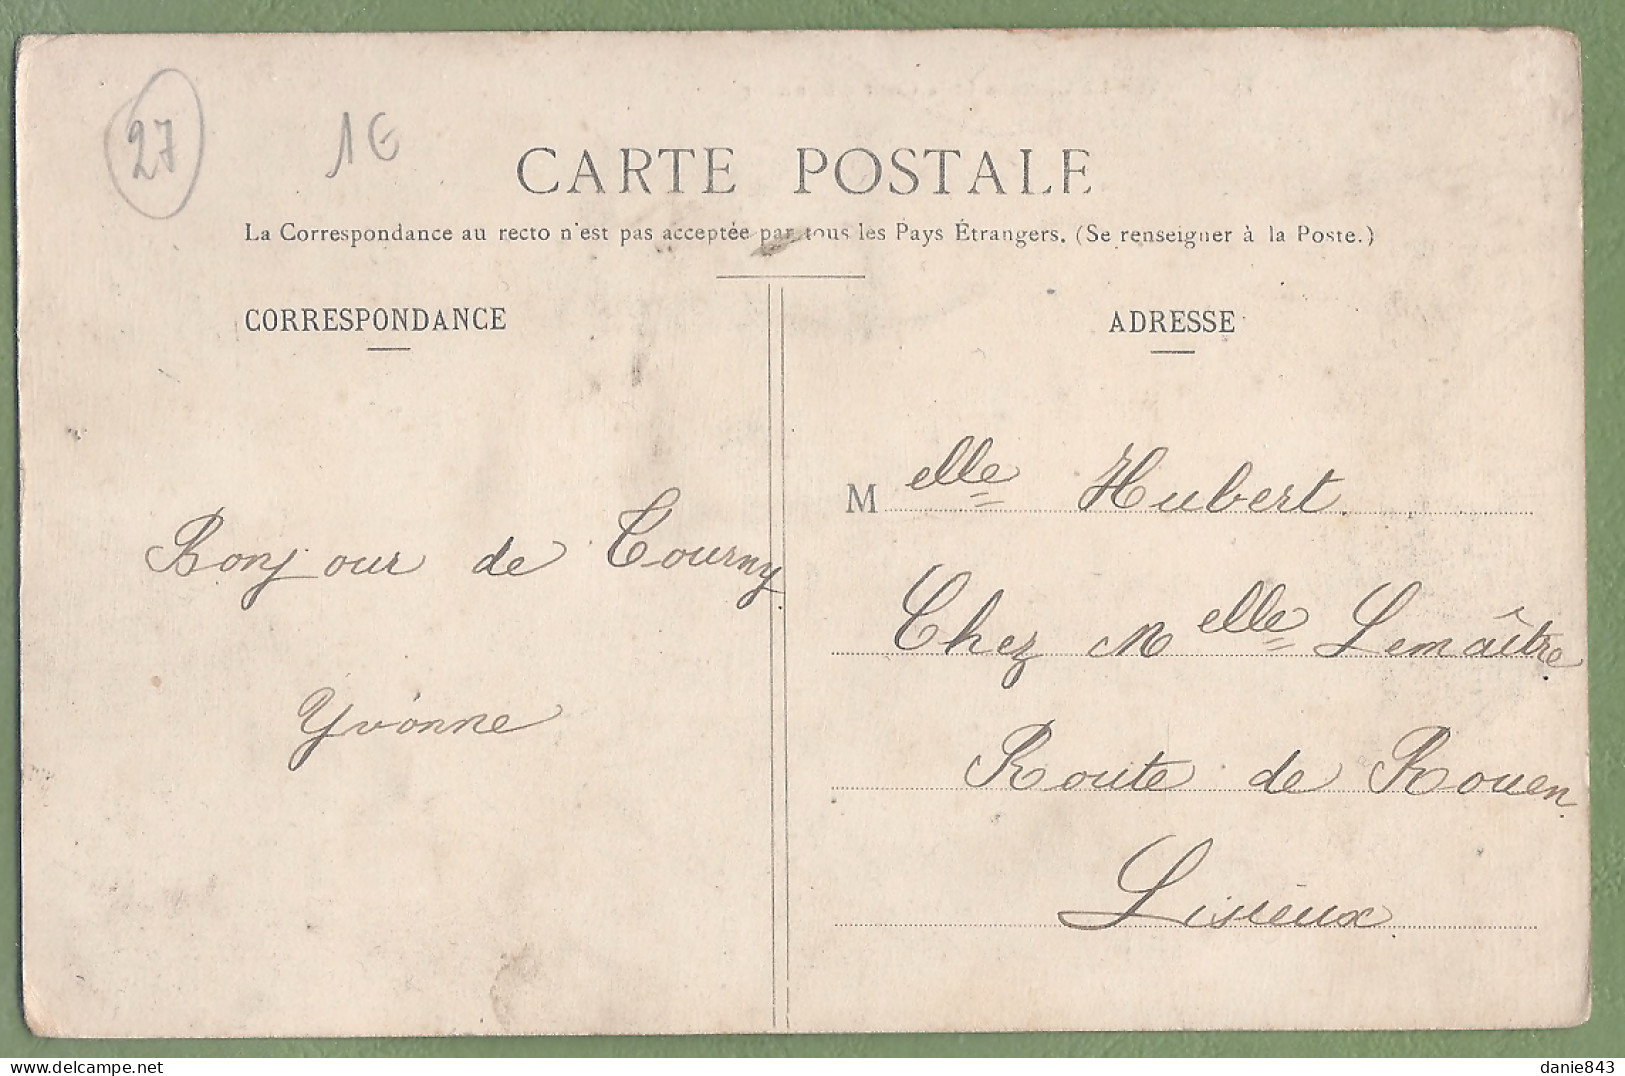 27
1€
CARTE POSTALE
La Correspondance au recto n'est pas acceptée par tous les Pays Étrangers. (Se renseigner à la Poste.)
CORRESPONDANCE
Bonjour de Tourny.
Yvonne
ADRESSE
Melle Hubert.
Chez Melle Lemaître
Route de Rouen
Lisieux
danie843